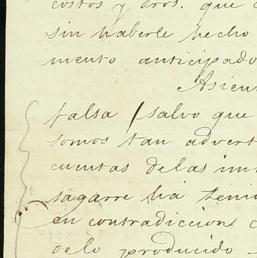 costos y dros. que
sin haberle hecho
mento anticipado
Asien
falsa (salvo que
somos tan advert
cuentas de las im
sagarre ha teni
en contradiccions c
delo producido